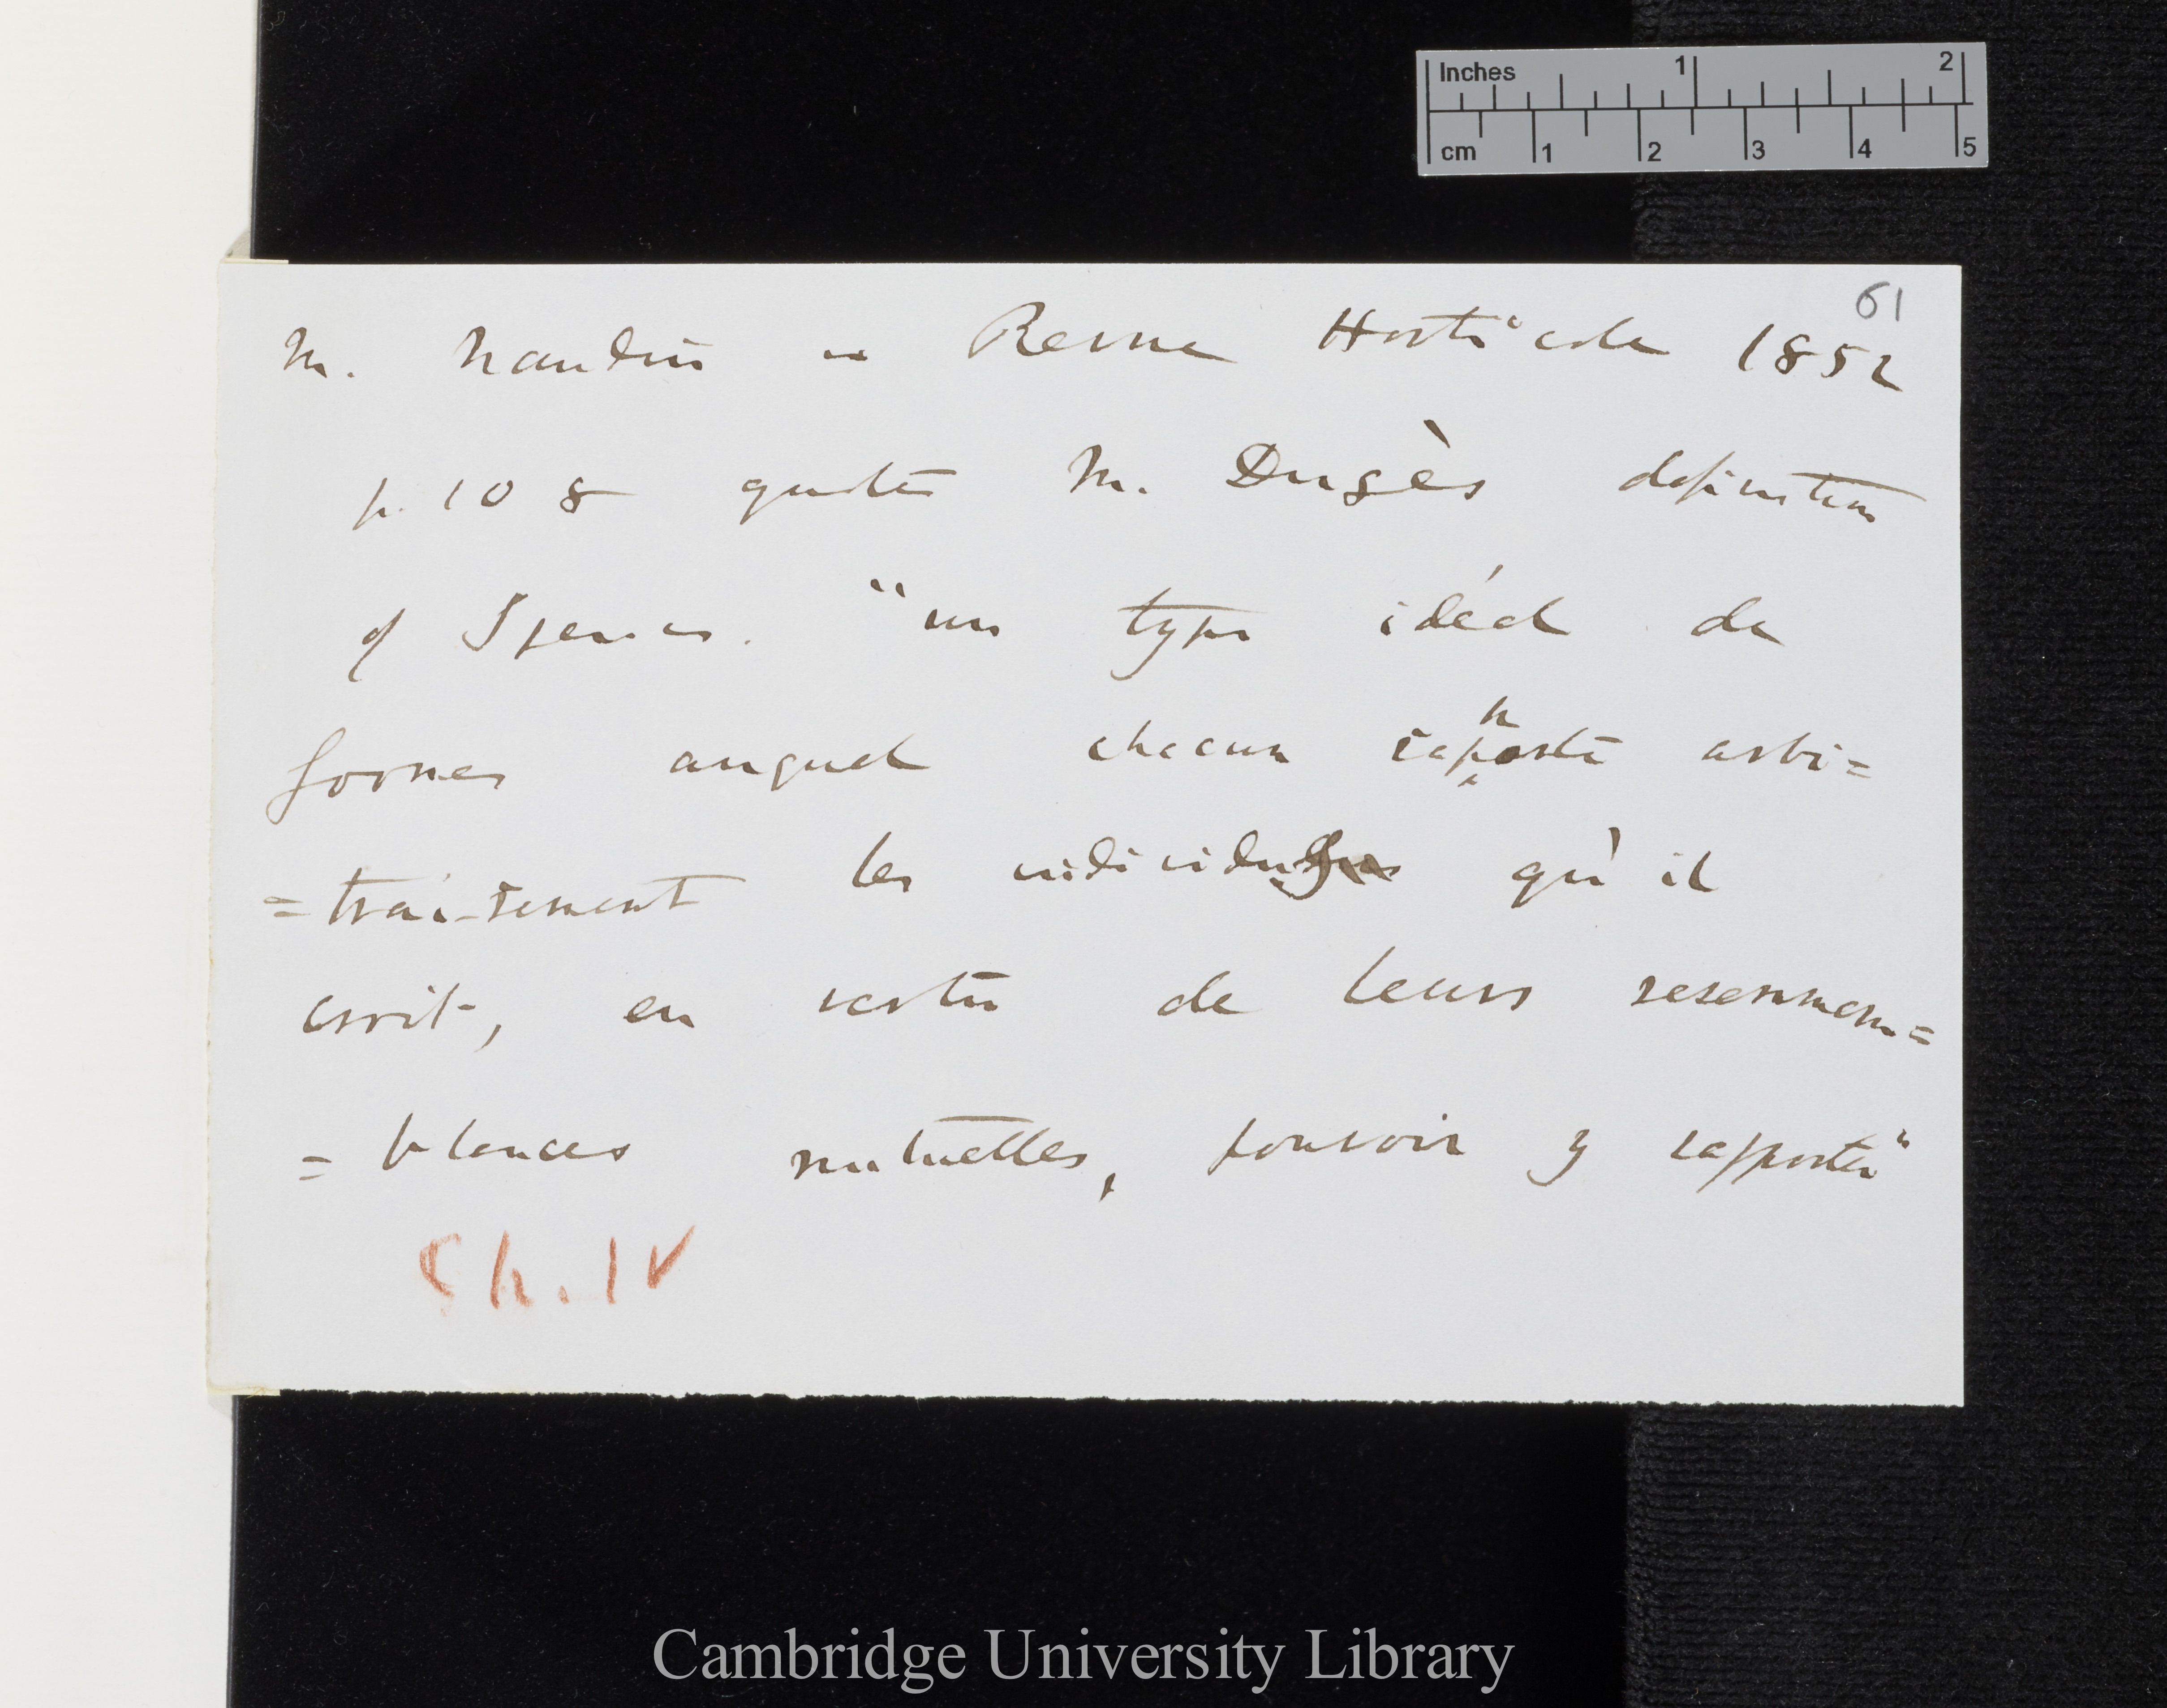 Inches 1 2
cm 1 2 3 4 5
61
M. Naudin in Revue Horticole 1852
p. 108 quotes M. Dugès definition
of Species. "un type idéal de
formes auquel chacun rapporte arbi=
=trairement les individus qu'il
croit, en vertu de leurs resemmem=
=blances mutuelles, pouvoir y rapporter"
Ch. IV
Cambridge University Library